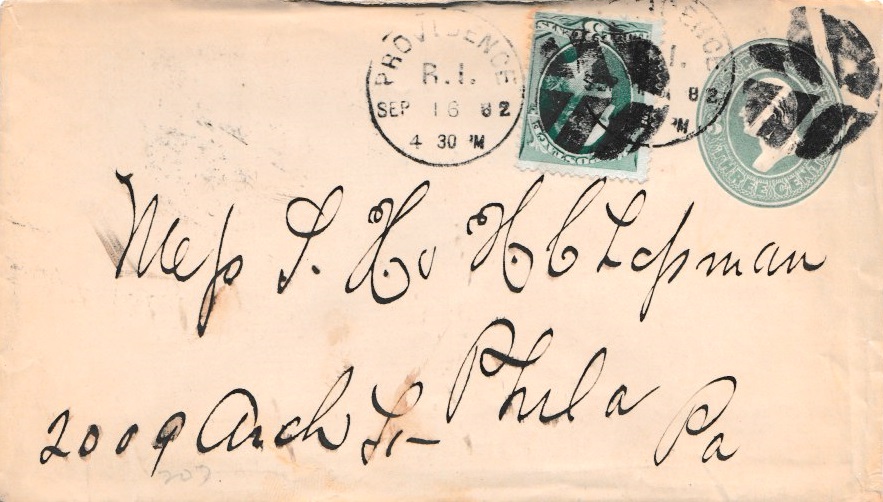 PROVIDENCE
R.I.
SEP 16 82
4 30 PM
82
PM
THREE CENTS
Mess S. H. & H. C. Lessman
2009 Arch St Phila Pa
207